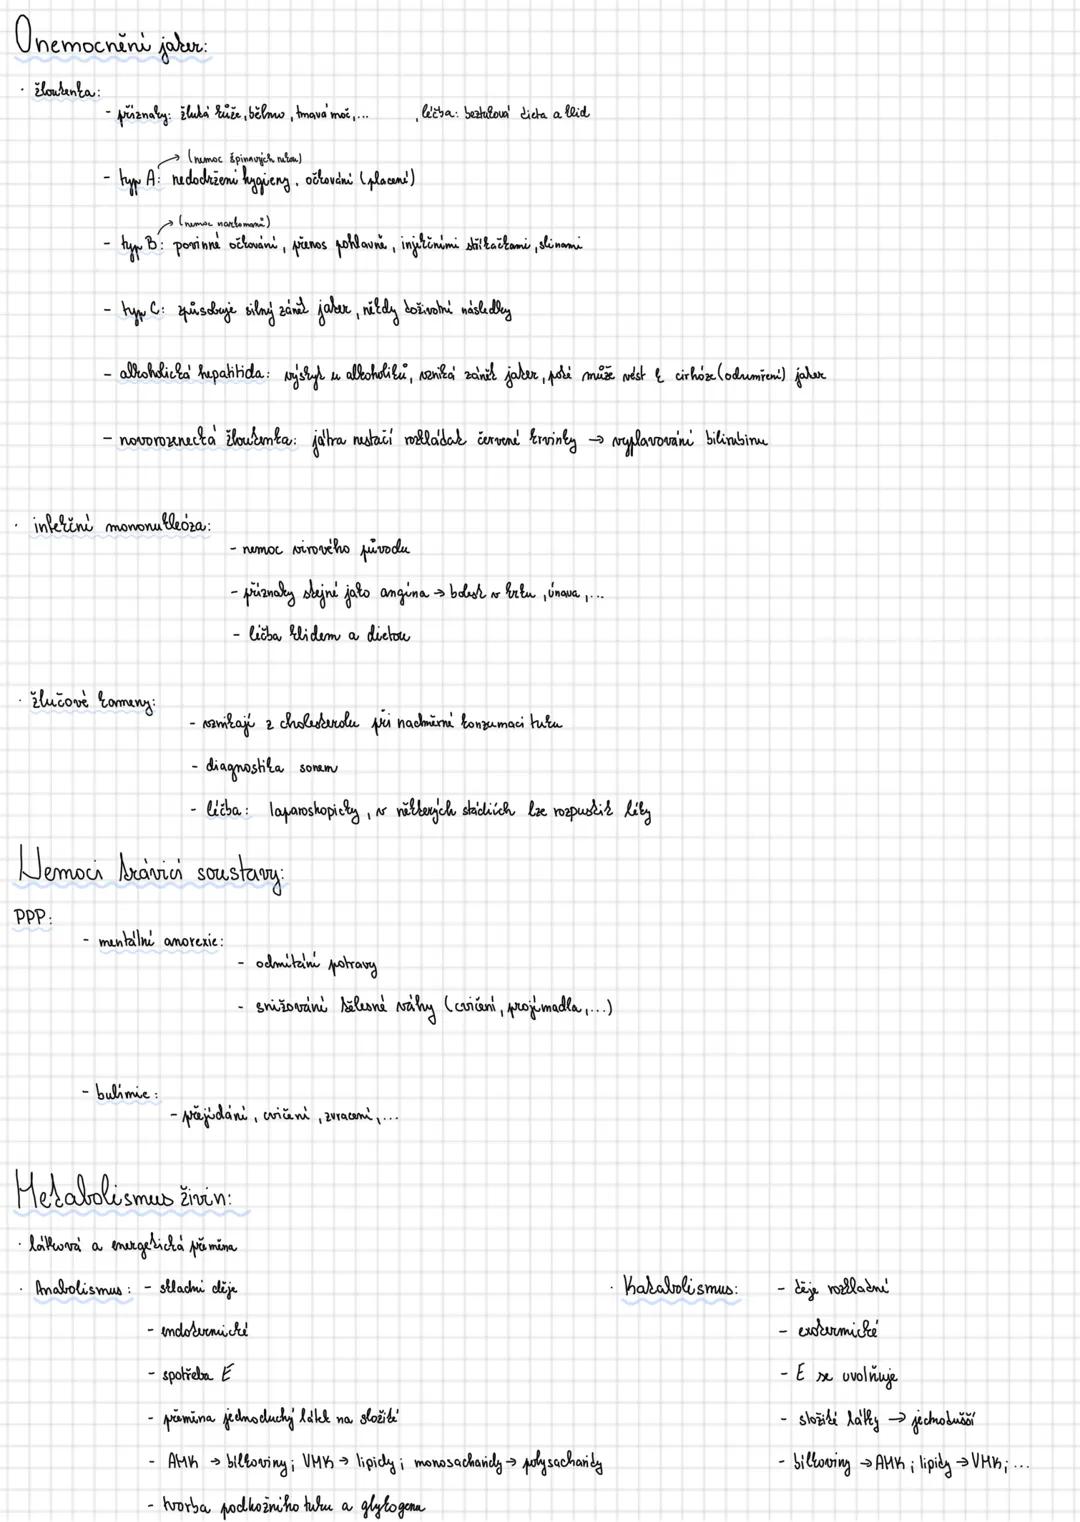 Onemocnění jater:
· žloutenka:
- příznaky: žlutá kůže, bělmo, tmavá moč,... , léčba: beztuková dieta a klid
→ (nemoc špinavých rukou)
- typ A: nedodržení hygieny, očkování (placené)
→ (nemoc narkomanů)
- typ B: povinné očkování, přenos pohlavně, injekčními stříkačkami, slinami
- typ C: způsobuje silný zánět jater, někdy doživotní následky
- alkoholická hepatitida: výskyt u alkoholiků, vzniká zánět jater, poté může vést k cirhóze (odumření) jater
- novorozenecká žloutenka: játra nestačí rozkládat červené krvinky → vyplavování bilirubinu
· infekční mononukleóza:
- nemoc virového původu
- příznaky stejné jako angina → bolest v krku, únava,...
- léčba klidem a dietou
· žlučové kameny:
- vznikají z cholesterolu při nadměrné konzumaci tuku
- diagnostika sonem
- léčba: laparoskopicky, v některých stádiích lze rozpustit léky
Nemoci trávicí soustavy:
PPP:
- mentální anorexie:
- odmítání potravy
- snižování tělesné váhy (cvičení, projímadla,...)
- bulimie:
- přejídání, cvičení, zvracení,...
Metabolismus živin:
· látková a energetická přeměna
· Anabolismus: - skladní děje
- endotermické
- spotřeba E
- přeměna jednoduchý látek na složité
- AMK → bílkoviny; VMK → lipidy; monosacharidy → polysacharidy
- tvorba podkožního tuku a glykogenu
· Katabolismus: - děje rozkladné
- exotermické
- E se uvolňuje
- složité látky → jednodušší
- bílkoviny → AMK; lipidy → VMK; ...